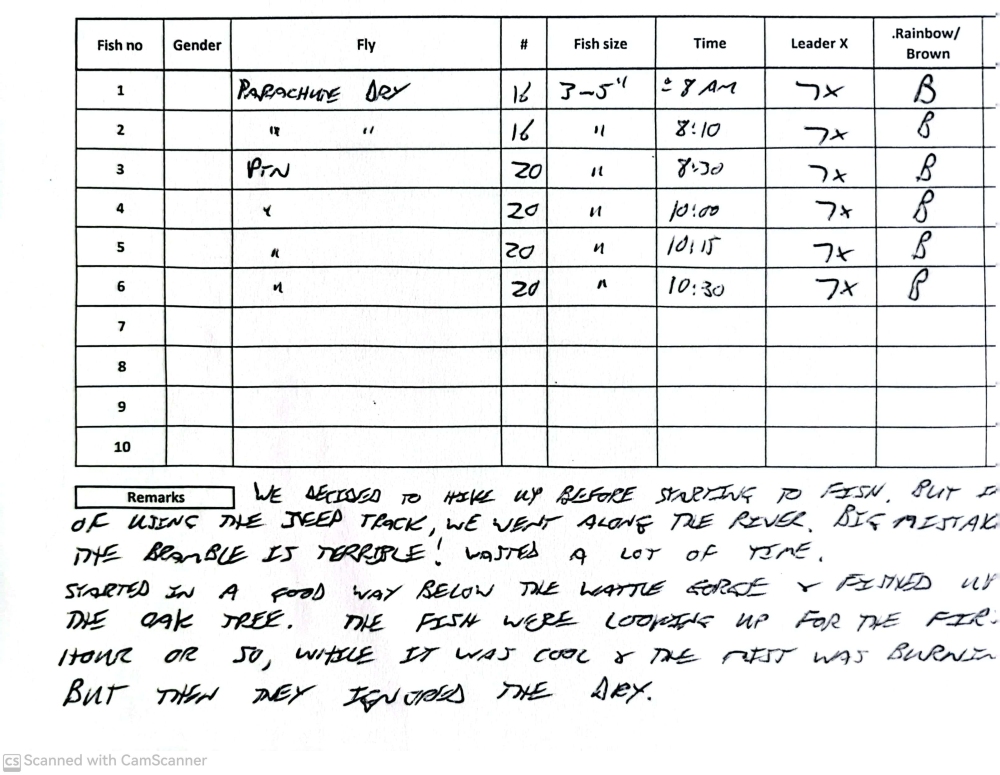 Fish no Gender Fly # Fish size Time Leader X .Rainbow/ Brown
1 PARACHUTE DRY 16 3-5" ± 8 AM 7X B
2 " " 16 " 8:10 7X B
3 PTN 20 " 8:30 7X B
4 " 20 " 10:00 7X B
5 " 20 " 10:15 7X B
6 " 20 " 10:30 7X B
7
8
9
10
Remarks WE DECIDED TO HIKE UP BEFORE STARTING TO FISH. BUT I
OF USING THE JEEP TRACK, WE WENT ALONG THE RIVER. BIG MISTAK
THE BRAMBLE IS TERRIBLE! WASTED A LOT OF TIME.
STARTED IN A GOOD WAY BELOW THE WATTLE GORGE & FISHED UP
THE OAK TREE. THE FISH WERE LOOKING UP FOR THE FIR
HOUR OR SO, WHILE IT WAS COOL & THE MIST WAS BURNIN
BUT THEN THEY IGNORED THE DRY.
CS Scanned with CamScanner